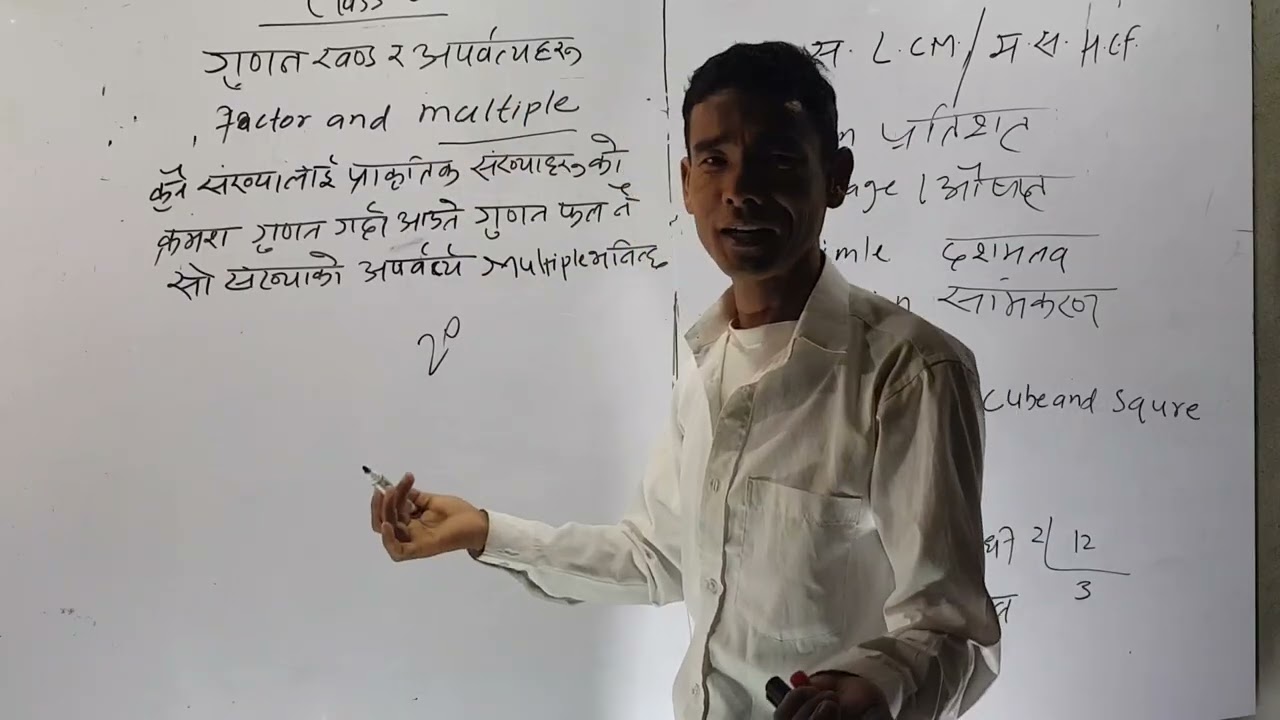 Class
गुणन खण्ड र अपर्वत्यहरू
Factor and multiple
कुनै संख्यालाई प्राकृतिक संख्याहरूको
क्रमश गुणन गर्दा आउने गुणन फल नै
सो संख्याको अपर्वर्त्य multiple भनिन्छ
स. L.CM. / म.स. H.CF.
प्रतिशत
age / औषत
imle दशमलव
in सामिकरण
cube and Squre
2 12
3